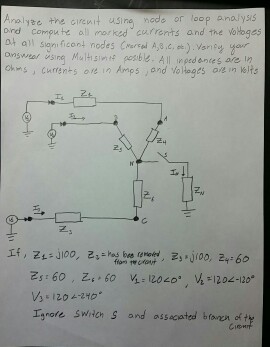 Analyze the circuit using node or loop analysis
and compute all marked currents and the voltages
at all significant nodes (marked A,B,C, etc.). Verify your
answer using Multisim if posible. All inpedences are in
Ohms, currents are in Amps, and Voltages are in Volts
I₁ Z₁
B A
Z₅ Z₄
N S
Z₆ Zₙ
I₃ Z₃ C
If, Z₁=j100, Z₂=has been removed from the circuit, Z₃=j100, Z₄=60
Z₅=60, Z₆=60 V₁=120<0°, V₂=120<-120°
V₃=120<-240°
Ignore Switch S and associated branch of the
Circuit